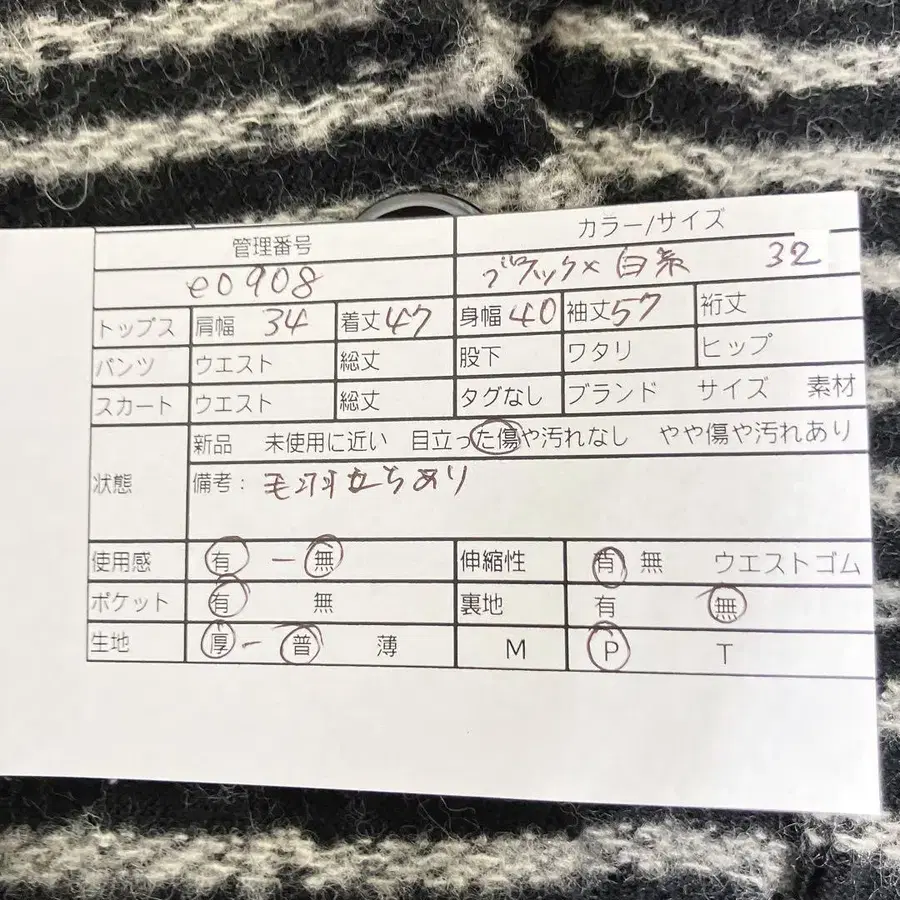 管理番号 カラー/サイズ
e0908 ブラック×白系 32
トップス 肩幅 34 着丈47 身幅40 袖丈57 裄丈
パンツ ウエスト 総丈 股下 ワタリ ヒップ
スカート ウエスト 総丈 タグなし ブランド サイズ 素材
状態 新品 未使用に近い 目立った傷や汚れなし やや傷や汚れあり
備考: 毛羽立ちあり
使用感 有 ー 無 伸縮性 有 無 ウエストゴム
ポケット 有 無 裏地 有 無
生地 厚 ー 普 薄 M P T